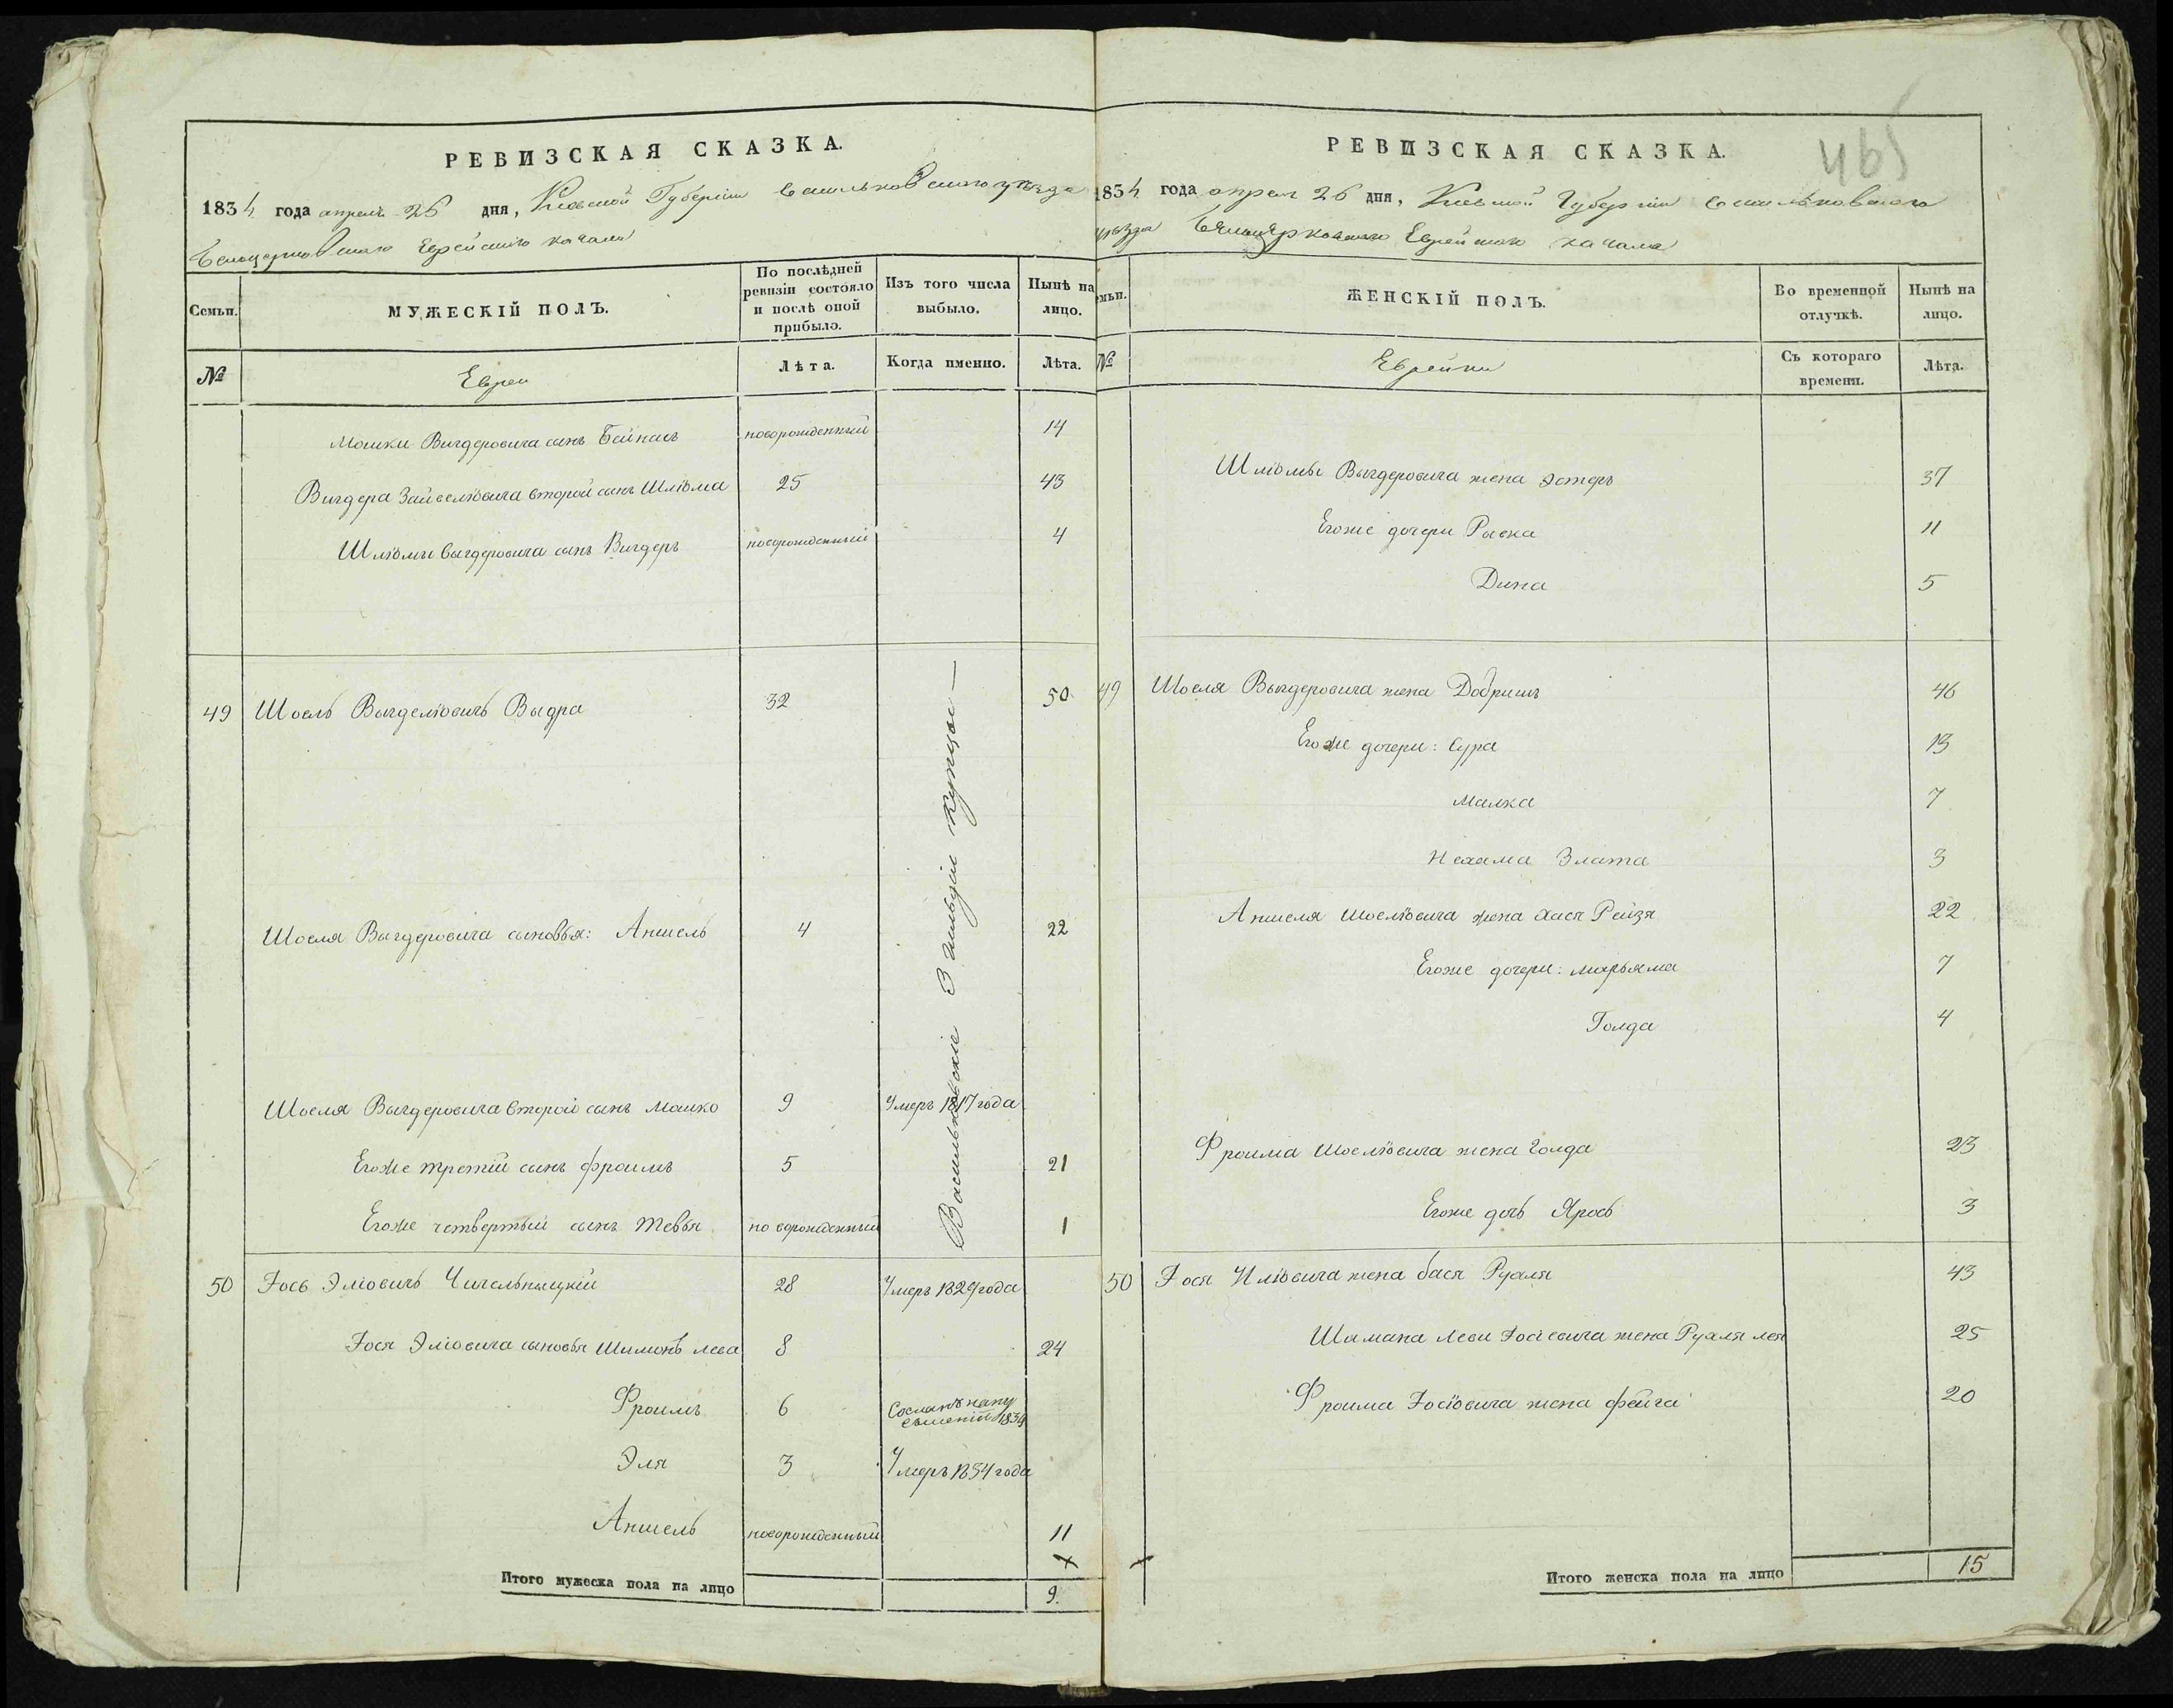 РЕВИЗСКАЯ СКАЗКА.
1834 года апреля 26 дня, Киевской Губернии Васильковского уезда
Белоцерковского Еврейского кагала
Семьи.
МУЖЕСКІЙ ПОЛЪ.
По послѣдней ревизіи состояло и послѣ оной прибыло.
Изъ того числа выбыло.
Нынѣ на лицо.
№
Евреи
Лѣта.
Когда именно.
Лѣта.
Мошки Выгдеровича сынъ Бейнасъ новорожденный 14
Выгдера Зайвелiовича второй сынъ Шлiома 25 43
Шлiомы Выгдеровича сынъ Выгдеръ новорожденный 4
49 Шоель Выгделiовичъ Выдра 32 50
Шоеля Выгдеровича сыновья: Аншель 4 22
Шоеля Выгдеровича второй сынъ Мошко 9 Умеръ 1817 года
Егоже третiй сынъ Фроимъ 5 21
Егоже четвертый сынъ Тевья новорожденный 1
Васильковскiе 3 гильдiи Купцы —
50 Iось Элiовичъ Чигельницкiй 28 Умеръ 1829 года
Iося Элiовича сыновья Шимонъ Лева 8 24
Фроимъ 6 Сосланъ на пу
селенiй 1834
Эля 3 Умеръ 1834 года
Аншель новорожденный 11
Итого мужеска пола на лицо 9.
РЕВИЗСКАЯ СКАЗКА.
465
1834 года апреля 26 дня, Киевской Губернiи Васильковского
уезда Белоцерковского Еврейского кагала
Семьи.
ЖЕНСКІЙ ПОЛЪ.
Во временной отлучкѣ.
Нынѣ на лицо.
№
Еврейки
Съ котораго времени.
Лѣта.
Шлiомы Выгдеровича жена Эстеръ 37
Егоже дочери Рывка 11
Дина 5
49 Шоеля Выгдеровича жена Добришъ 46
Егоже дочери: Сура 13
Малка 7
Нехама Злата 3
Аншеля Шоелiовича жена Хася Рейзя 22
Егоже дочери: Марьяма 7
Голда 4
Фроима Шоелiовича жена Голда 23
Егоже дочь Ярось 3
50 Iося Илiовича жена Бася Рухля 43
Шимана Леви Iосiевича жена Рухля Лея 25
Фроима Iосiовича жена Фейга 20
Итого женска пола на лицо 15